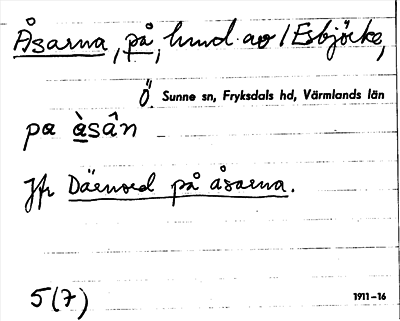 Åsarna, på, hund. av / Esbjörke,
Ö. Sunne sn, Fryksdals hd, Värmlands län
pa àsân
Jfr på åsarna.
5(7) 1911–16